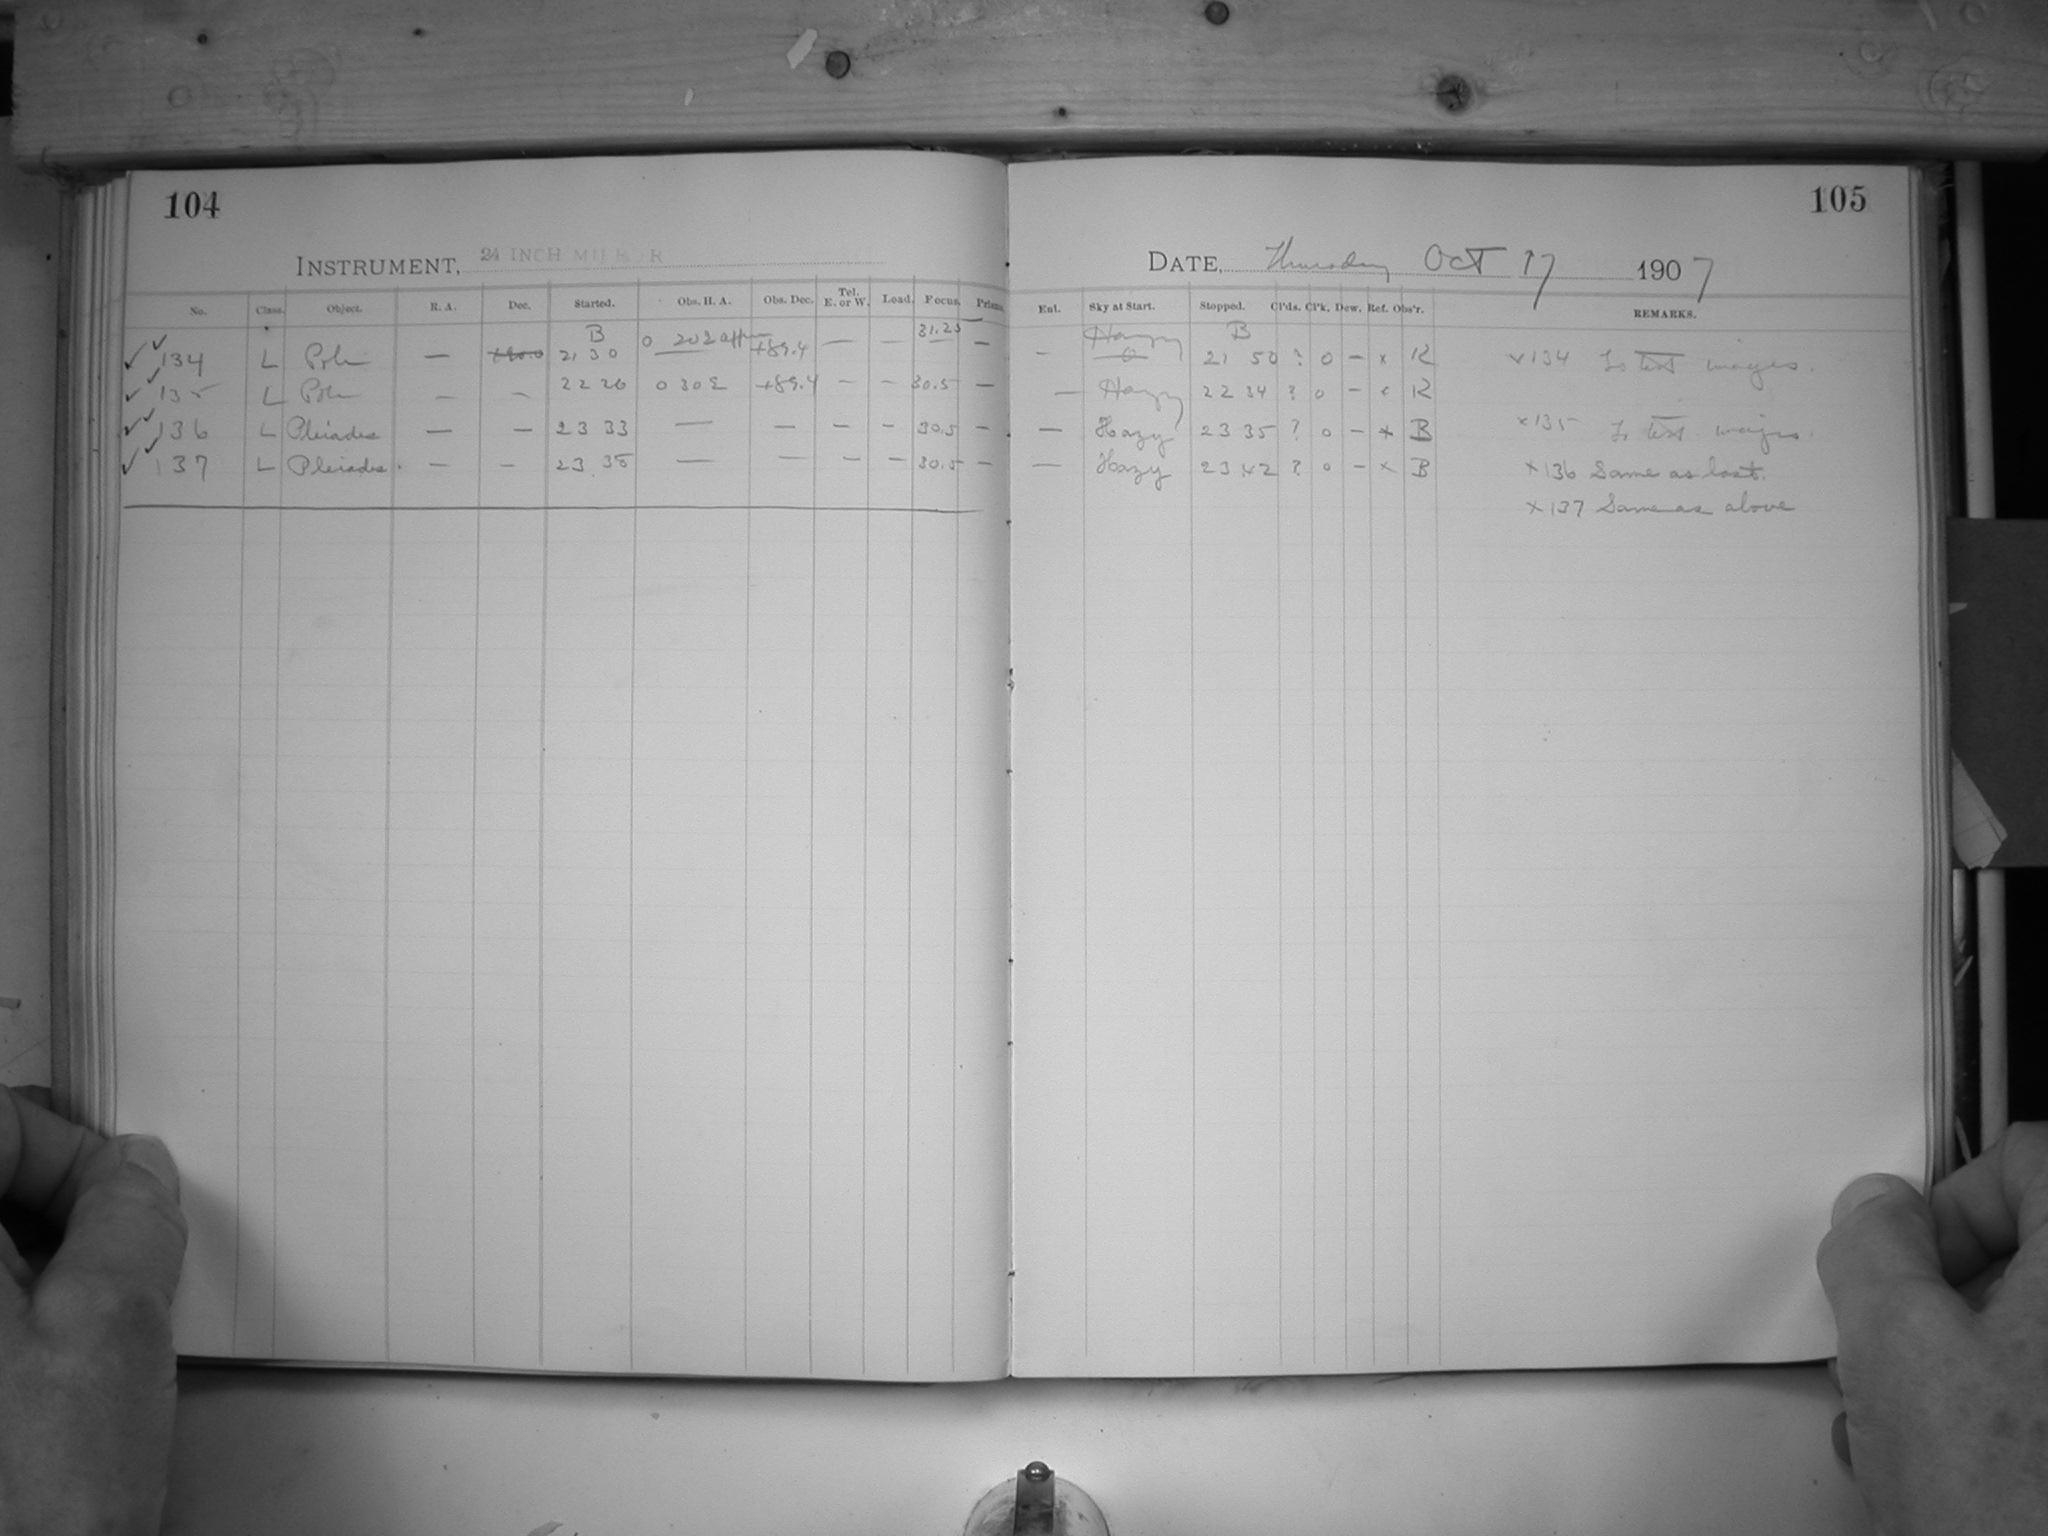 104
INSTRUMENT, 24 INCH MIRROR
No. Class. Object. R. A. Dec. Started. Obs. H. A. Obs. Dec. Tel. E. or W. Load. Focus. Prisms.
B 31.25
134 L Pole — 21 30 0 20 E +89.4 — — —
135 L Pole — — 22 26 0 30 E +89.4 — — 30.5 —
136 L Pleiades — — 23 33 — — — — 30.5 —
137 L Pleiades — — 23 38 — — — — 30.5 —
105
DATE, Thursday Oct 17 1907
Enl. Sky at Start. Stopped. Cl'ds. Cl'k. Dew. Ref. Obs'r. REMARKS.
Hazy B
— 0 21 50 ? 0 — x K x134 To test images.
— Hazy 22 34 ? 0 — x K
— Hazy 23 35 ? 0 — x B x135 To test images.
— Hazy 23 42 ? 0 — x B x136 Same as last.
x137 Same as above